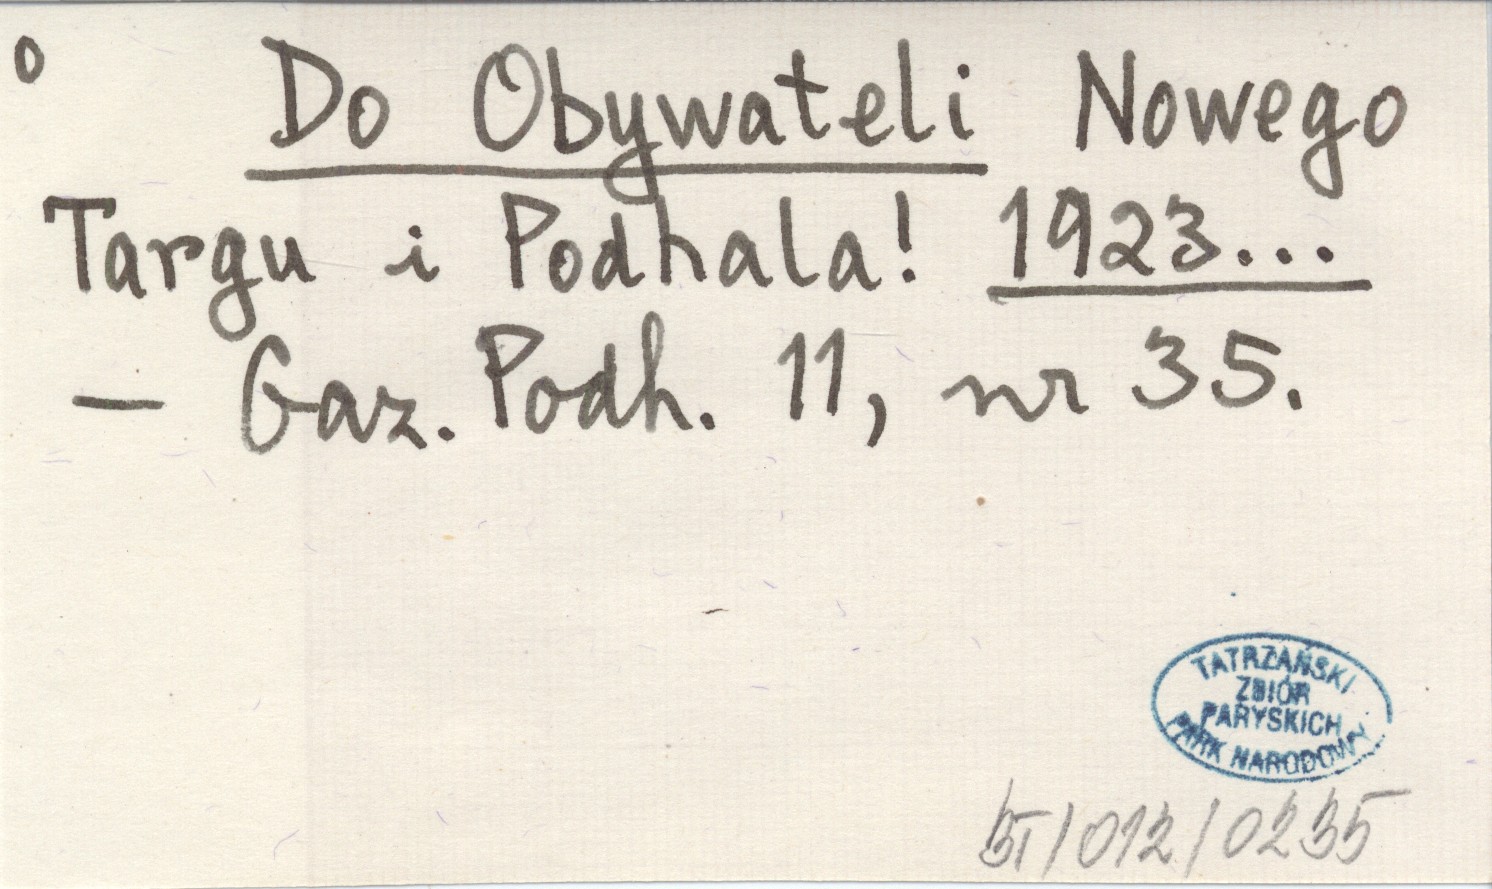 o Do Obywateli Nowego
Targu i Podhala! 1923...
— Gaz. Podh. 11, nr 35.
TATRZAŃSKI
ZBIÓR
PARYSKICH
PARK NARODOWY
/012/0235